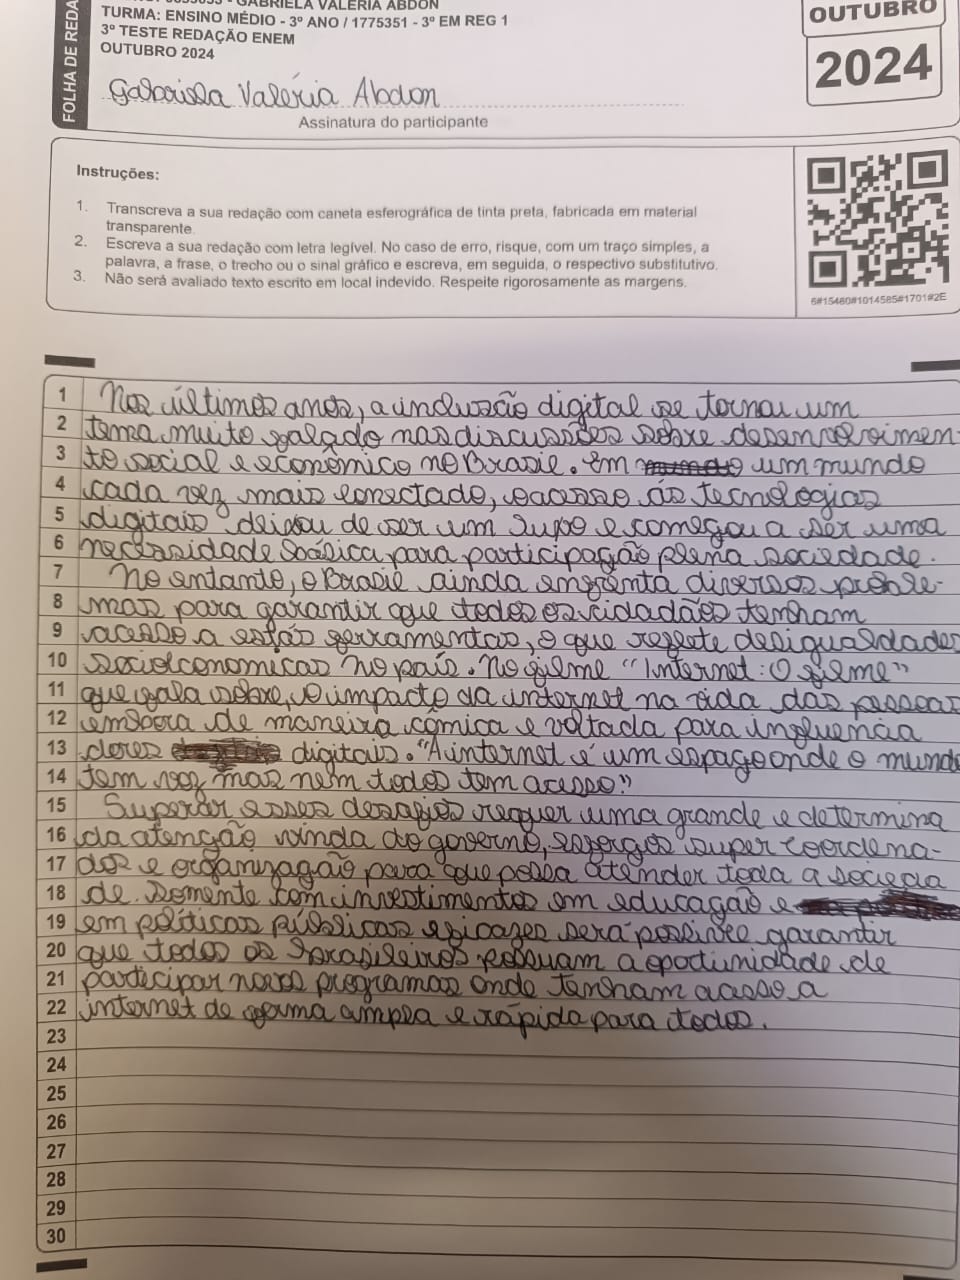 GABRIELA VALÉRIA ABDON
TURMA: ENSINO MÉDIO - 3º ANO / 1775351 - 3º EM REG 1
3º TESTE REDAÇÃO ENEM
OUTUBRO 2024
FOLHA DE REDA
OUTUBRO
2024
Gabriela Valéria Abdon
Assinatura do participante
Instruções:
1. Transcreva a sua redação com caneta esferográfica de tinta preta, fabricada em material
transparente.
2. Escreva a sua redação com letra legível. No caso de erro, risque, com um traço simples, a
palavra, a frase, o trecho ou o sinal gráfico e escreva, em seguida, o respectivo substitutivo.
3. Não será avaliado texto escrito em local indevido. Respeite rigorosamente as margens.
6#15480#1014585#1701#2E
1 Nos últimos anos, a inclusão digital se tornou um
2 tema muito falado nas discussões sobre desenvolvimen-
3 to social e econômico no Brasil. Em mundo um mundo
4 cada vez mais conectado, o acesso ás tecnologias
5 digitais deixou de ser um luxo e começou a ser uma
6 necessidade básica para participação plena sociedade.
7 No entanto, o Brasil ainda enfrenta diversos proble-
8 mas para garantir que todos os cidadãos tenham
9 acesso a estás ferramentas, o que reflete desigualdades
10 socioeconomicas no país. No filme "Internet: O filme"
11 que fala sobre, o impacto da internet na vida das pessoas
12 embora de maneira cômica e voltada para influencia
13 dores digitais. "A internet é um espaço onde o mundo
14 tem voz mas nem todos tem acesso."
15 Superar esses desafios requer uma grande e determina
16 da atenção vinda do governo, esforços super coordena-
17 dos e organização para que possa atender toda a socieda
18 de. Somente com investimentos em educação e
19 em políticas públicas eficazes será possivel garantir
20 que todos os brasileiros possuam a oportunidade de
21 participar novos programas onde tenham acesso a
22 internet de forma ampla e rápida para todos.
23
24
25
26
27
28
29
30